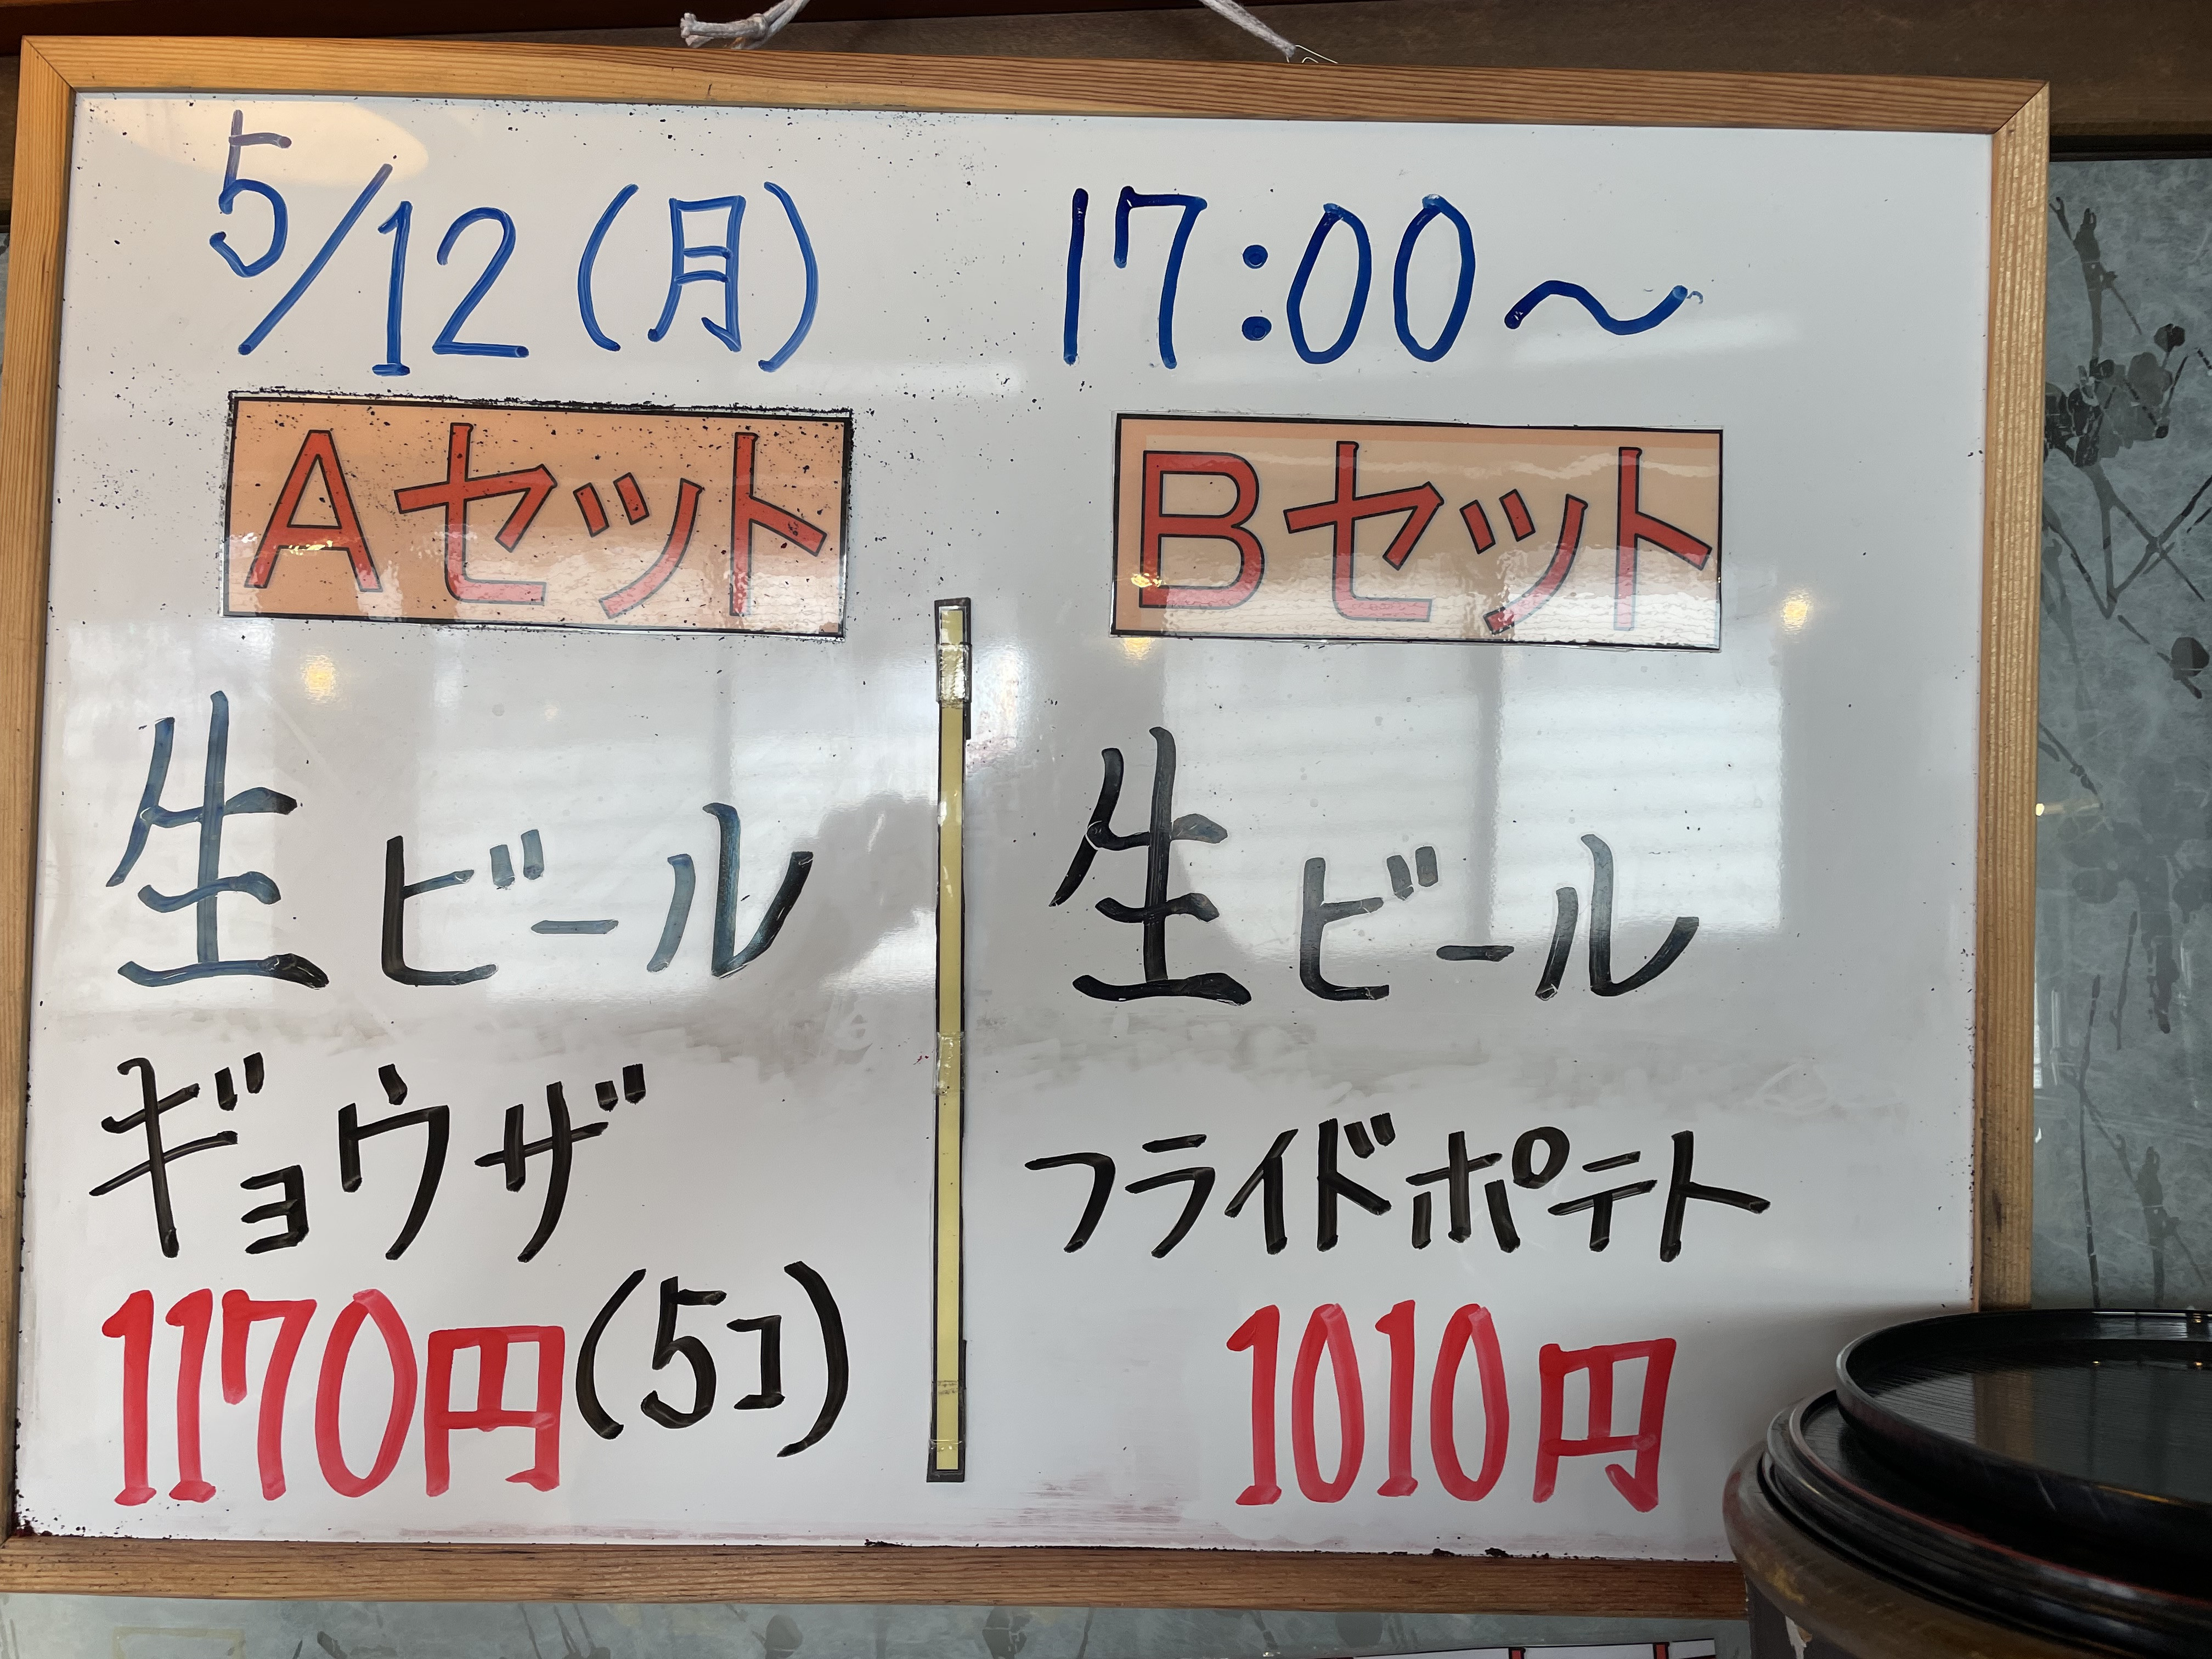 5/12(月) 17:00～
Aセット
生ビール
ギョウザ
1170円(5コ)
Bセット
生ビール
フライドポテト
1010円